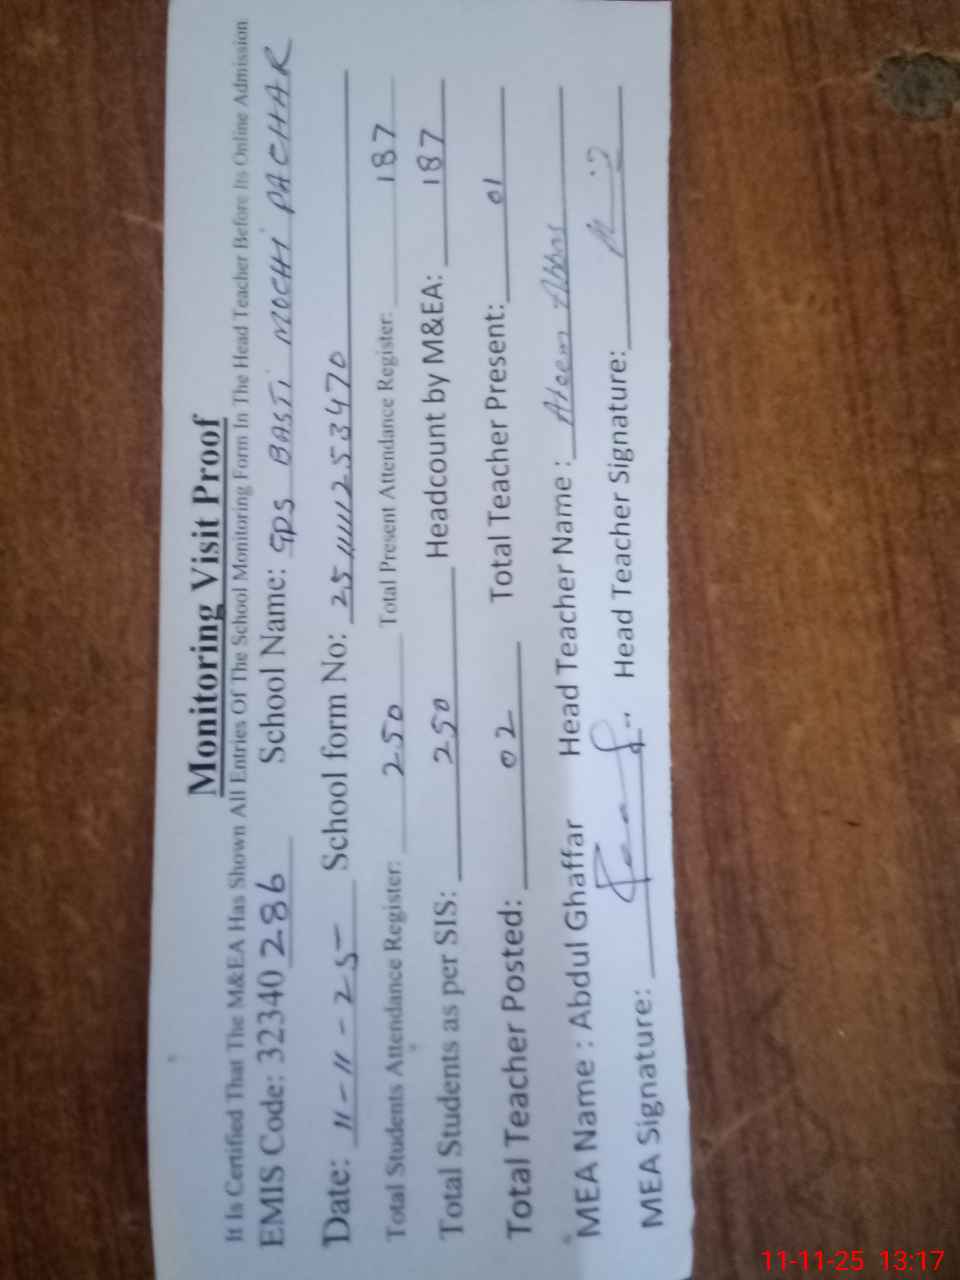 Monitoring Visit Proof
It Is Certified That The M&EA Has Shown All Entries Of The School Monitoring Form In The Head Teacher Before Its Online Admission
EMIS Code: 32340 286 School Name: GPS BASTI MOCHI PACHAR
Date: 11-11-25 School form No: 2511111253470
Total Students Attendance Register: 250 Total Present Attendance Register: 187
Total Students as per SIS: 250 Headcount by M&EA: 187
Total Teacher Posted: 02 Total Teacher Present: 01
MEA Name : Abdul Ghaffar Head Teacher Name : Aleem Abbas
MEA Signature: Head Teacher Signature:
11-11-25 13:17